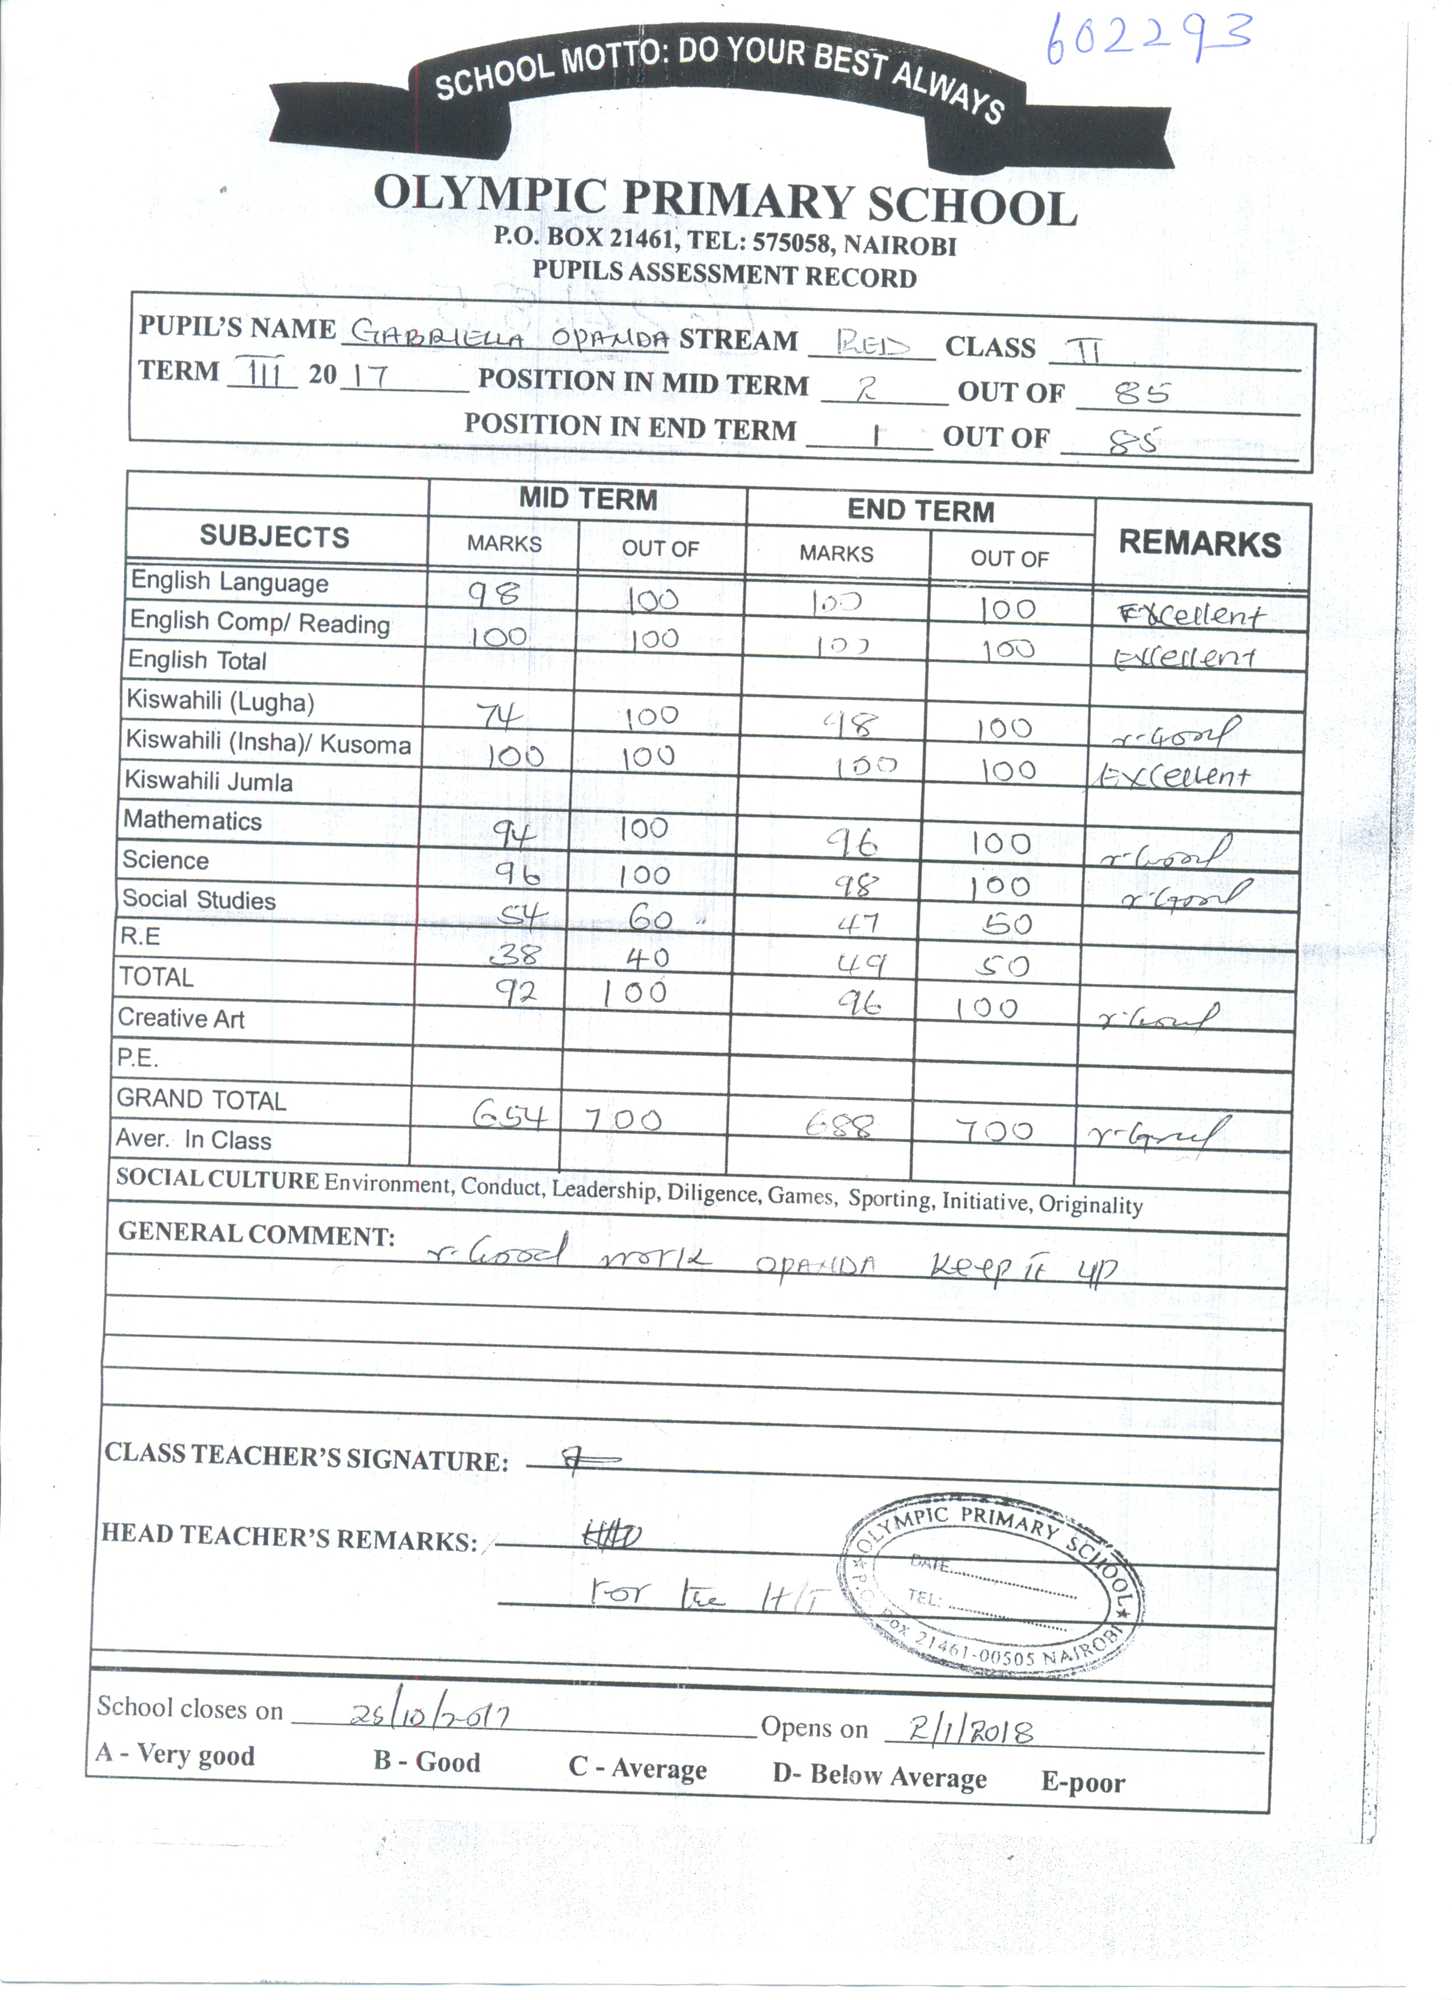 602293
SCHOOL MOTTO: DO YOUR BEST ALWAYS
OLYMPIC PRIMARY SCHOOL
P.O. BOX 21461, TEL: 575058, NAIROBI
PUPILS ASSESSMENT RECORD
PUPIL'S NAME GABRIELLA OPANDA STREAM RED CLASS II
TERM III 2017 POSITION IN MID TERM 2 OUT OF 85
POSITION IN END TERM 1 OUT OF 85
SUBJECTS MID TERM END TERM REMARKS
MARKS OUT OF MARKS OUT OF
English Language 98 100 100 100 Excellent
English Comp/ Reading 100 100 100 100 Excellent
English Total
Kiswahili (Lugha) 74 100 98 100 v-Good
Kiswahili (Insha)/ Kusoma 100 100 100 100 Excellent
Kiswahili Jumla
Mathematics 94 100 96 100 v-Good
Science 96 100 98 100 v-Good
Social Studies 54 60 47 50
R.E 38 40 49 50
TOTAL 92 100 96 100 v-Good
Creative Art
P.E.
GRAND TOTAL 654 700 688 700 v-Good
Aver. In Class
SOCIAL CULTURE Environment, Conduct, Leadership, Diligence, Games, Sporting, Initiative, Originality
GENERAL COMMENT: v-Good work OPANDA Keep it up
CLASS TEACHER'S SIGNATURE:
HEAD TEACHER'S REMARKS:
For the H/T
OLYMPIC PRIMARY SCHOOL
DATE
TEL:
P.O. Box 21461-00505 NAIROBI
School closes on 25/10/2017 Opens on 2/1/2018
A - Very good B - Good C - Average D- Below Average E-poor